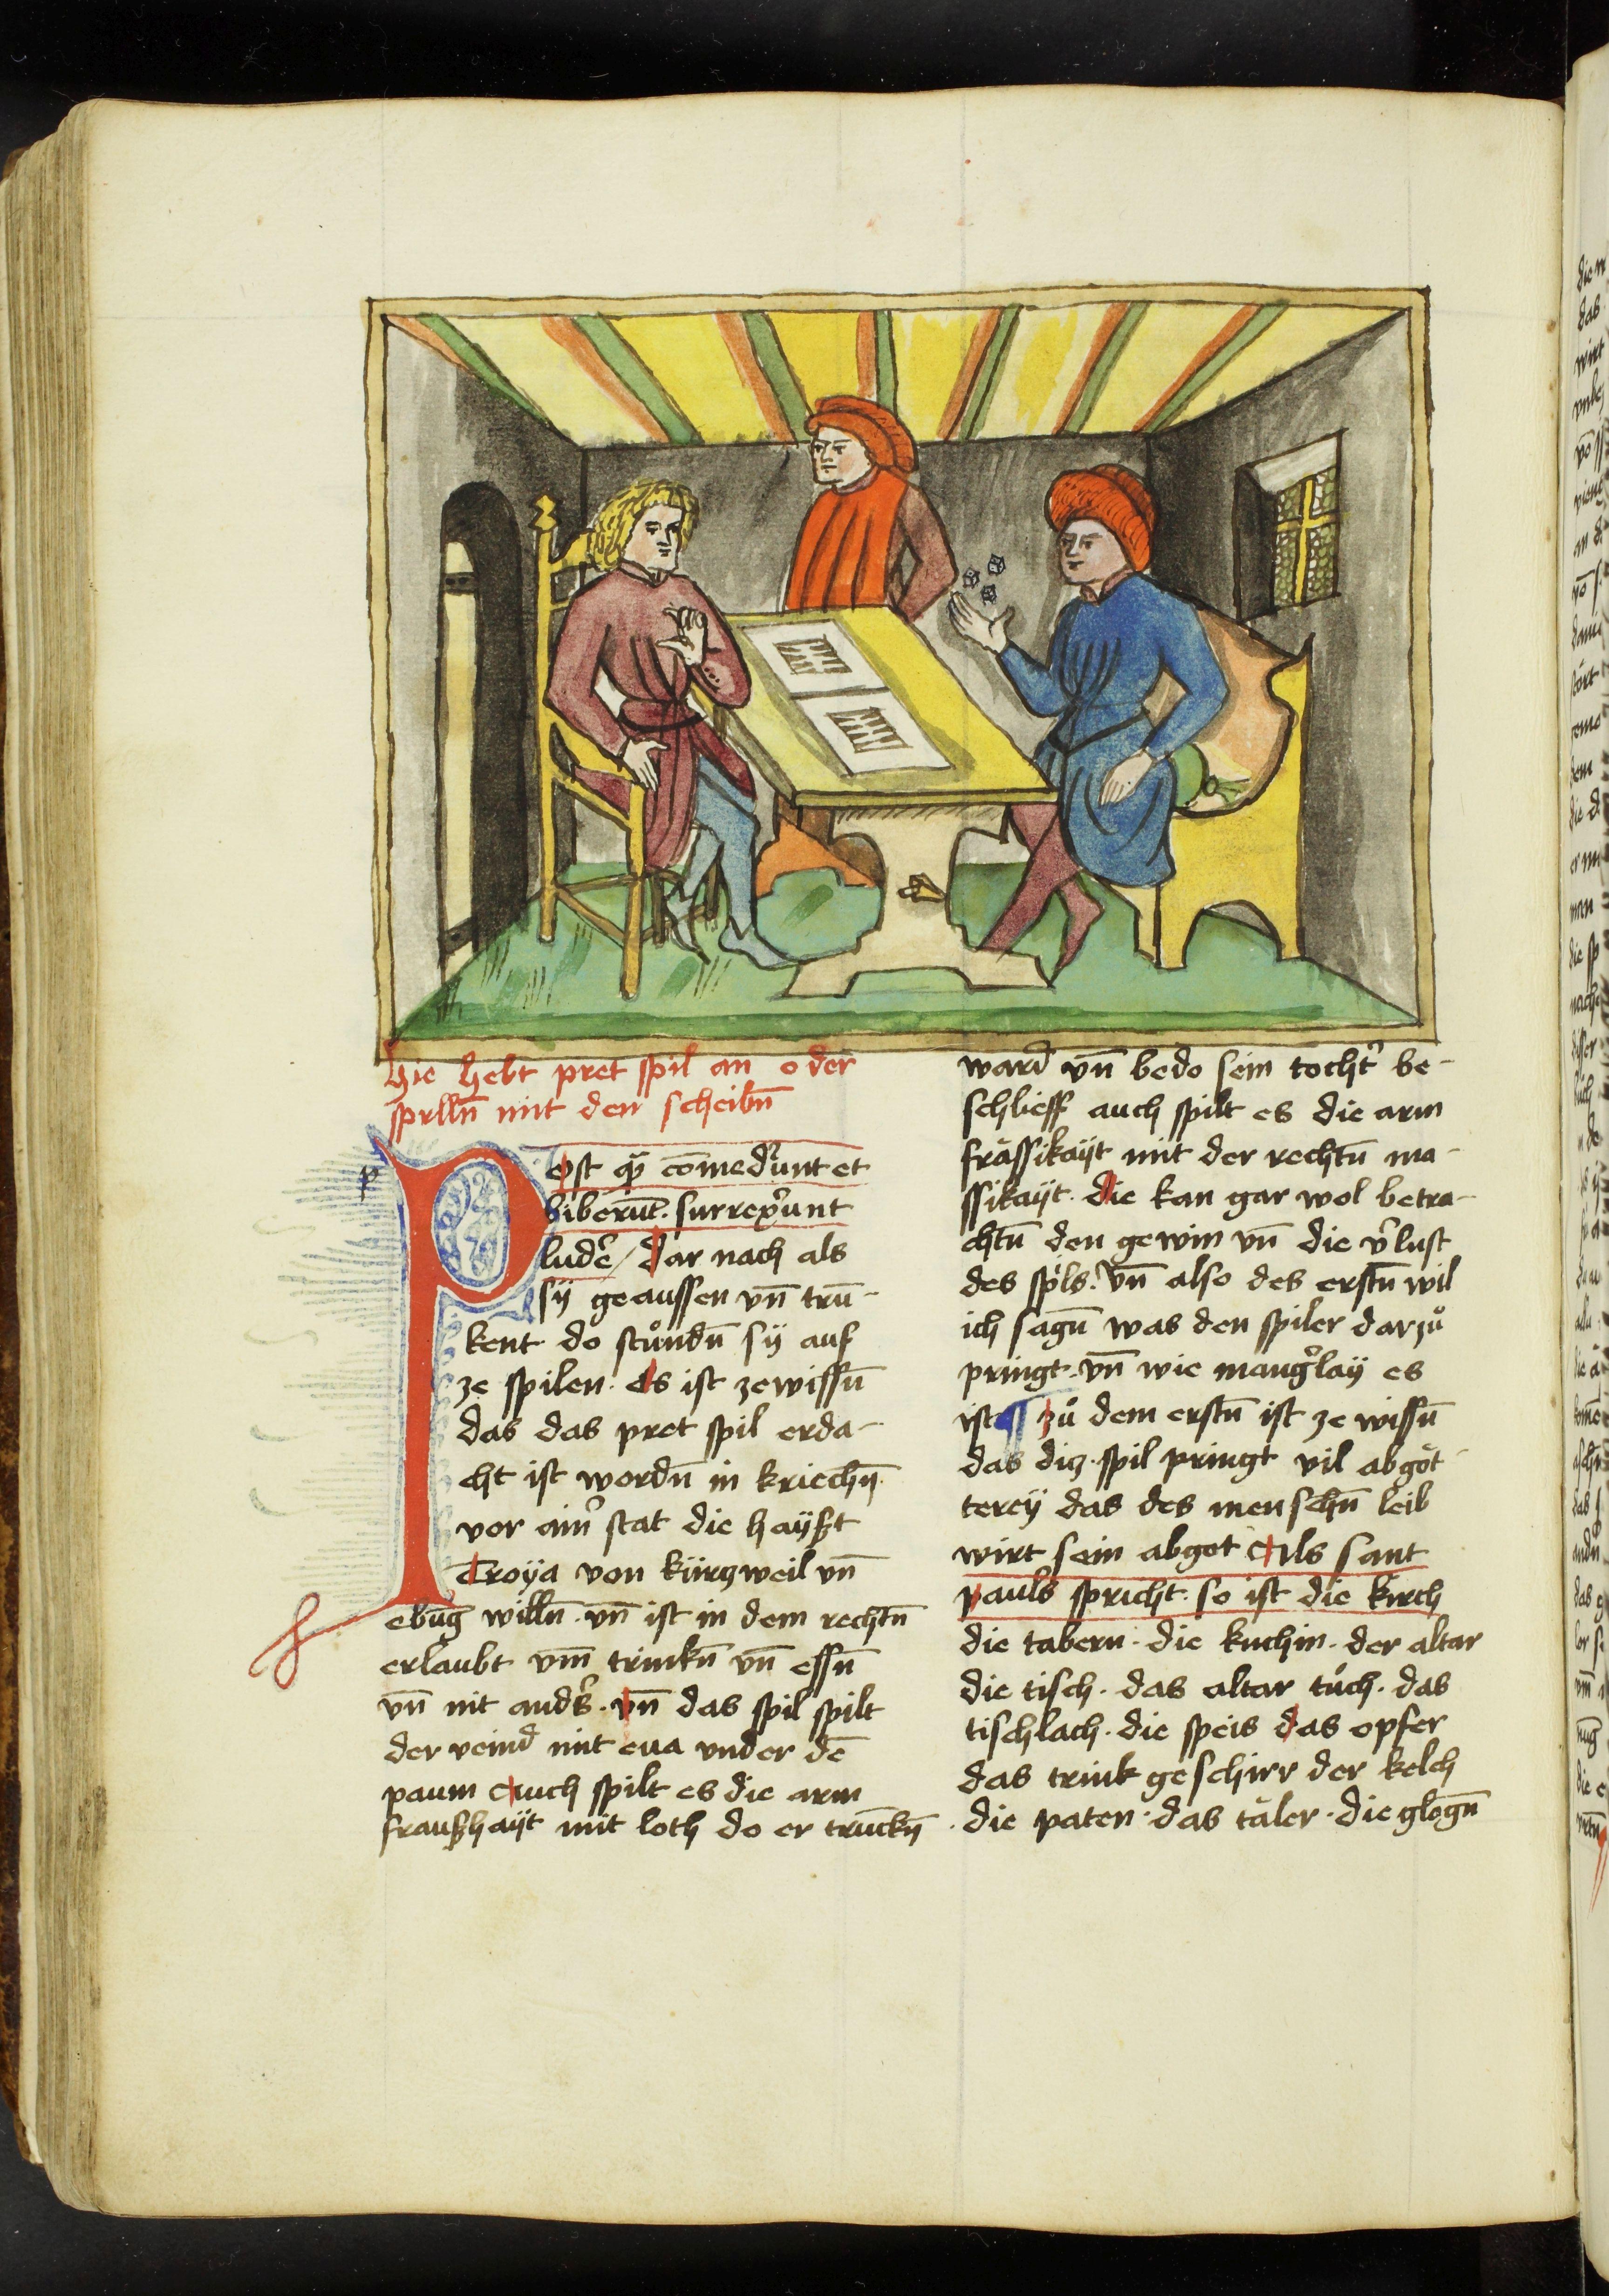 Hie hebt pret spil an oder
spilln̄ mit den scheibn̄
p
Post qͣ̄ com̄ederunt et
biberūt. surrexer̄unt
luder̄ / Dar nach als
sÿ geaussen vn̄ trū-
kent do stůndn̄ sÿ auf
ze spilen. Es ist zewissn̄
das das pret spil erda-
cht ist wordn̄ in kriechn̄.
vor ainr̄ stat die haÿßt
Troÿa von kürczweil vn̄
ebūg willn̄. vn̄ ist in dem rechtn̄
erlaubt vm̄ trinkn̄ vn̄ essn̄
vn̄ nit anders̄. vn̄ das spil spilt
der veind mit eua vnder dē
paum Auch spilt es die arm
fraußhaÿt mit loth do er trunckn̄
ward vn̄ bede sein tochtr̄ be-
schlieff auch spilt es die arm
frässikaÿt mit der rechtn̄ ma-
ssikaÿt. Die kan gar wol betra-
chtn̄ den gewin vn̄ die vr̄lust
des spils. vn̄ also des erstn̄ wil
ich sagn̄ was den spiler darzů
pringt. vn̄ wie mangr̄laÿ es
ist ¶ Zů dem erstn̄ ist ze wissn̄
das dicz. spil pringt vil abgöt-
tereÿ das des menschn̄ leib
wirt sein abgot Als sant
pauls spricht. so ist die kirch
die tabern. die kuchin. der altar
die tisch. das altar tůch. das
tischlach. die speis das opfer
das trink geschirr der kelch
die paten. das täler. die glogn̄